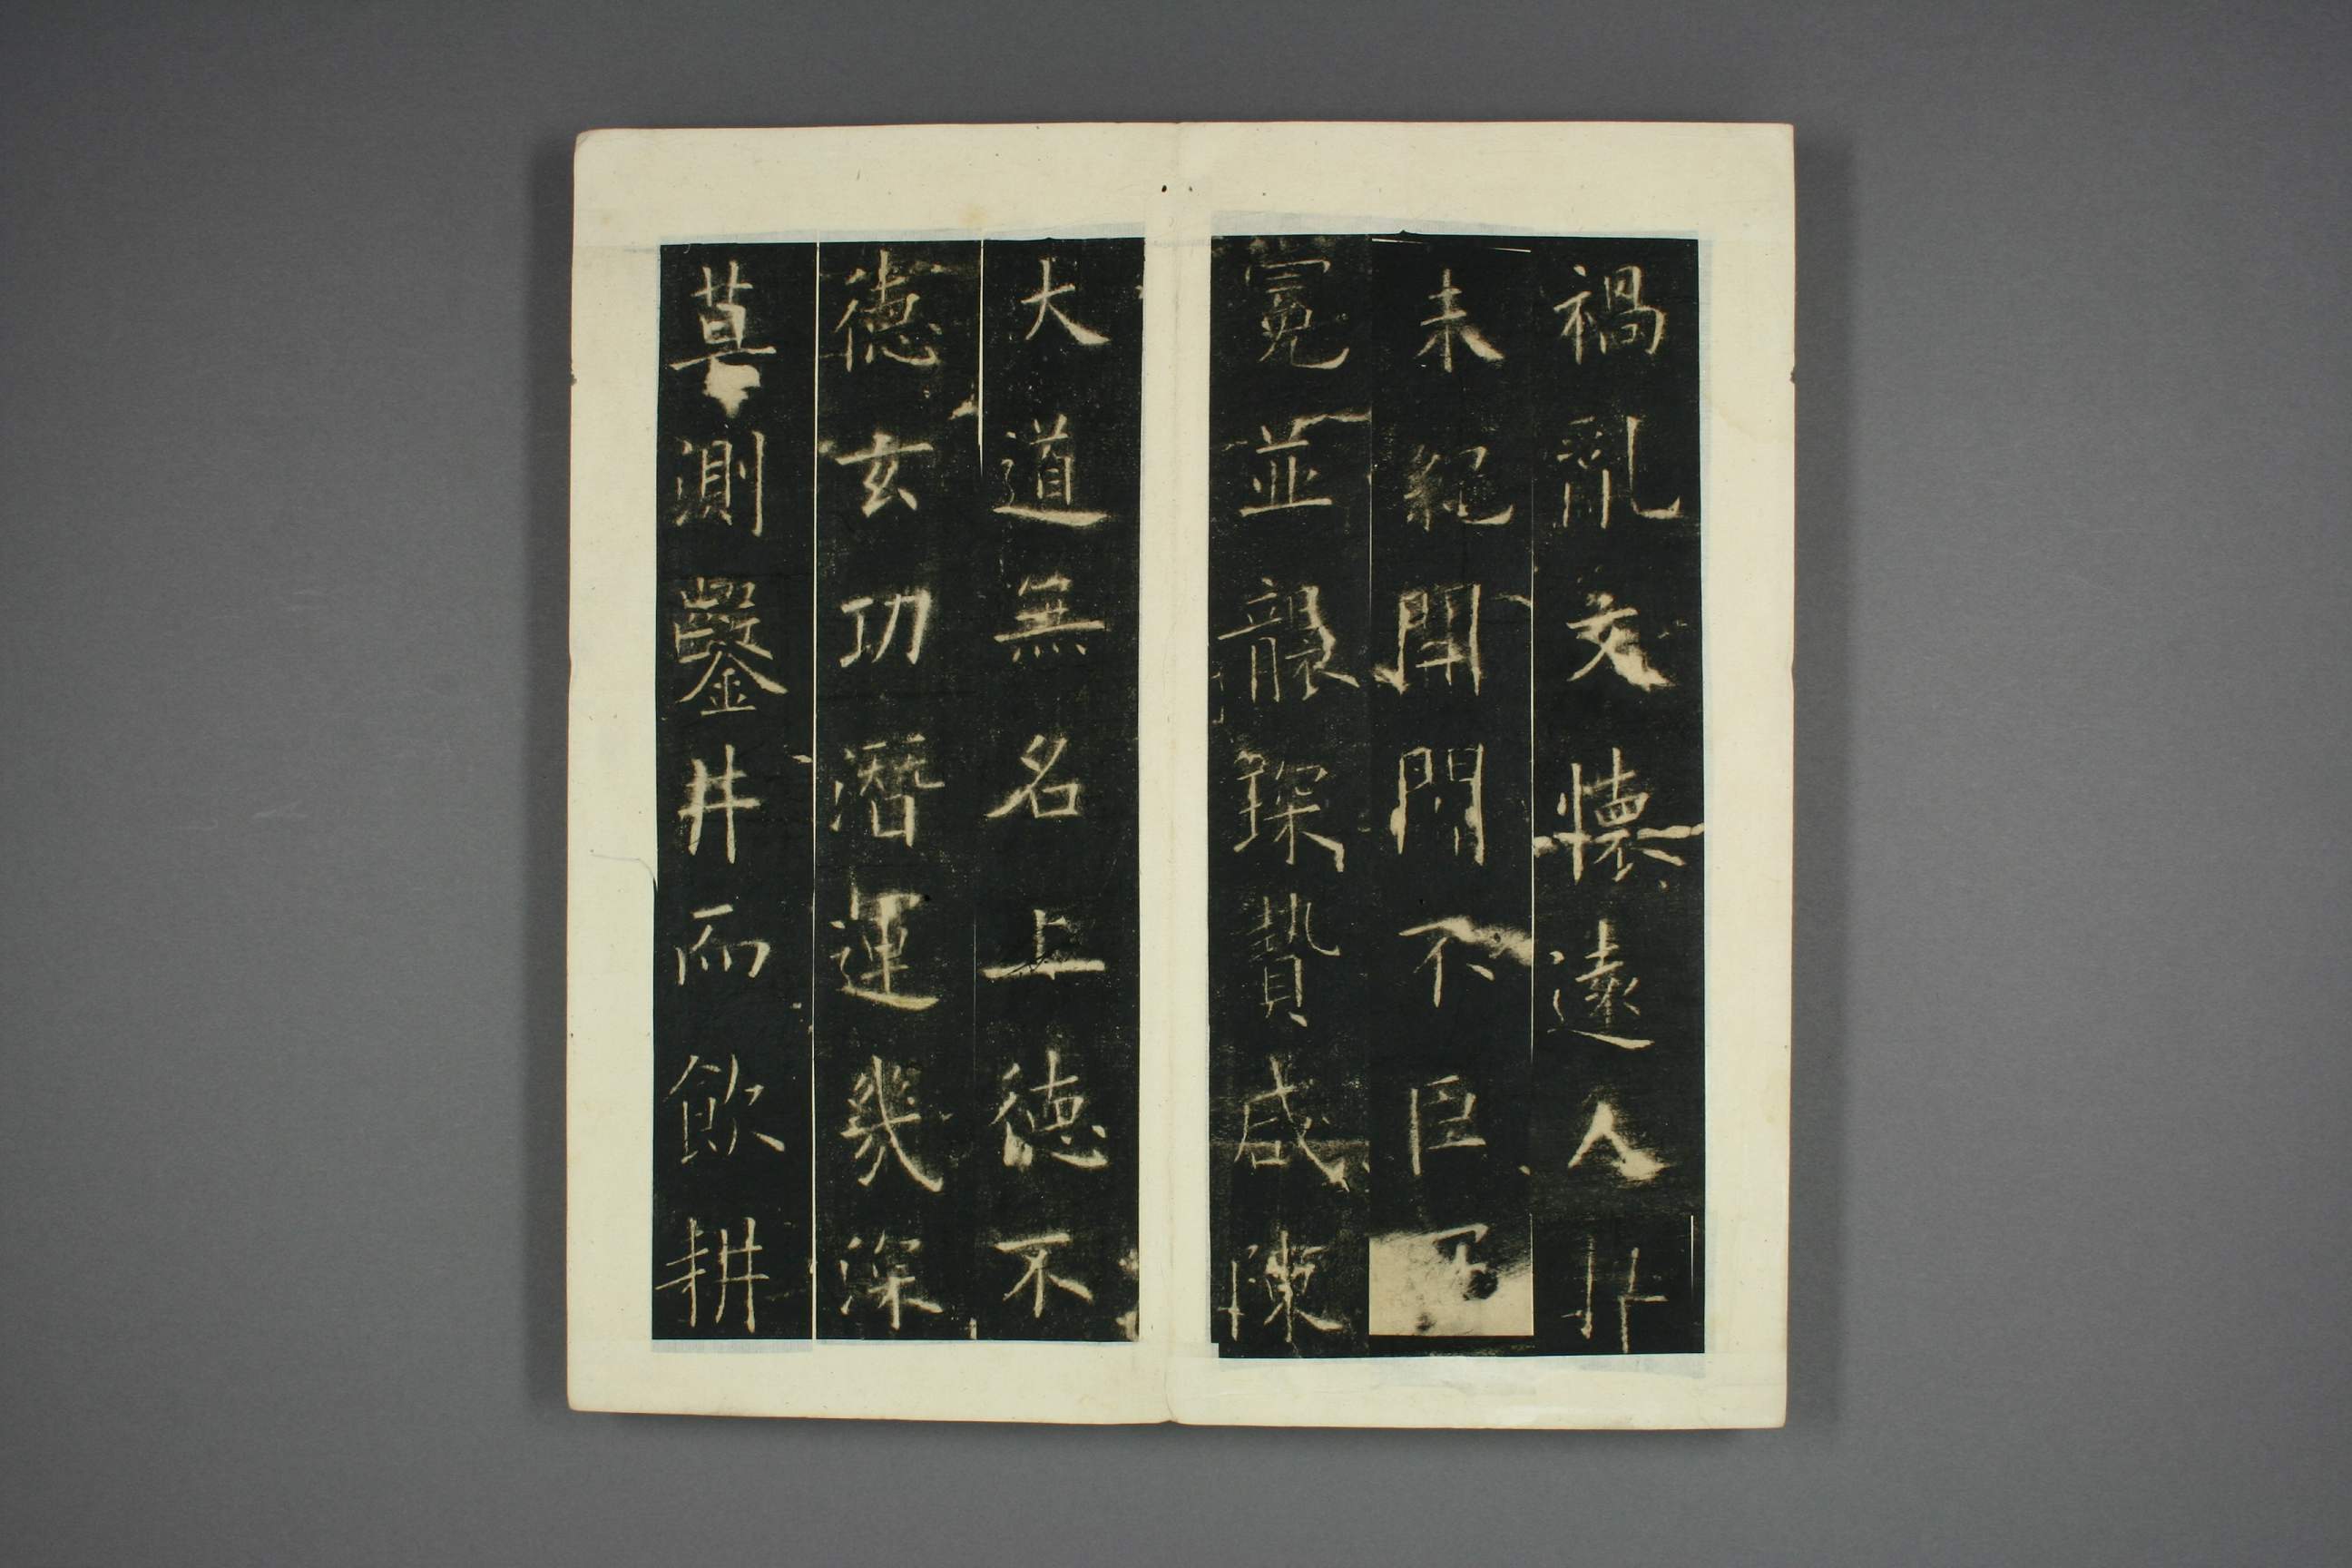 禍亂文懷遠人
未紀開不臣
冕並襲琛贄咸陳
大道無名上德不
德玄功潛運幾深
莫測鑿井而飲耕